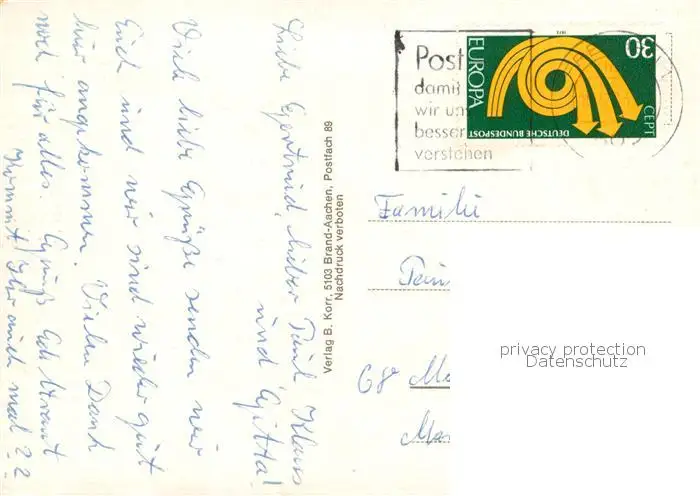 Liebe Gertrud, lieber Paul Klaus
und Gitta!
Viele liebe Grüße senden wir
Euch und wir sind wieder gut
hier angekommen. Vielen Dank
noch für alles. Gruß
Kommt Ihr auch mal??
Verlag B. Korr, 5103 Brand-Aachen, Postfach 89
Nachdruck verboten
Post
damit
wir un
besser
verstehen
30
EUROPA
CEPT
DEUTSCHE BUNDESPOST
1973
Familie
68
privacy protection
Datenschutz